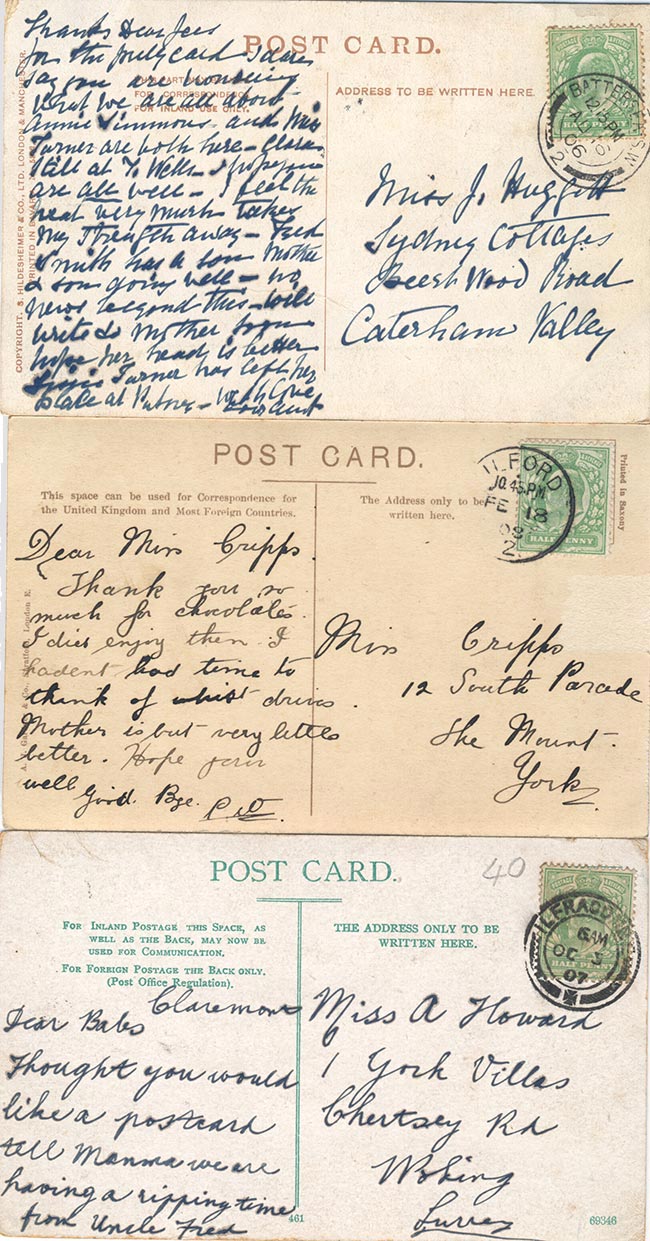 POST CARD.
THIS PART MAY BE USED
FOR CORRESPONDENCE
FOR INLAND USE ONLY.
ADDRESS TO BE WRITTEN HERE.
COPYRIGHT, S. HILDESHEIMER & CO., LTD. LONDON & MANCHESTER.
PRINTED IN
Thanks Dear Jess
for the pretty card I dare
say you wondering
what we are all about
Annie Simmons and Miss
Turner are both here - Clara
still at T. Wells - I
are all well - I feel the
heat very much takes
my strength away - Fred
Smith has a son Mother
& son doing well - no
news beyond this - will
write to Mother soon
hope her head is better
Lizzie Turner has left her
place at Putney - with love
Aunt
BATTERSEA S.W.
AU
06
2
HALF PENNY
Miss J. Huggett
Sydney Cottages
Beech Wood Road
Caterham Valley
POST CARD.
This space can be used for Correspondence for
the United Kingdom and Most Foreign Countries.
The Address only to be
written here.
Printed in Saxony
London E.
ILFORD
10.45PM
FE 18
08
2
HALF PENNY
Dear Miss Cripps.
Thank you so
much for chocolates
I did enjoy them I
hadent had time to
thank of whist drives.
Mother is but very little
better. Hope your
well
Good. Bye.
Miss Cripps
12 South Parade
The Mount.
York
POST CARD.
40
FOR INLAND POSTAGE THIS SPACE, AS
WELL AS THE BACK, MAY NOW BE
USED FOR COMMUNICATION.
FOR FOREIGN POSTAGE THE BACK ONLY.
(Post Office Regulation).
THE ADDRESS ONLY TO BE
WRITTEN HERE.
ILFRACOMBE
6AM
OC 3
07
HALF PENNY
Claremont
Dear Babs
Thought you would
like a postcard
tell Mamma we are
having a ripping time
from Uncle Fred
Miss A Howard
1 York Villas
Chertsey Rd
Woking
Surrey
461
69346